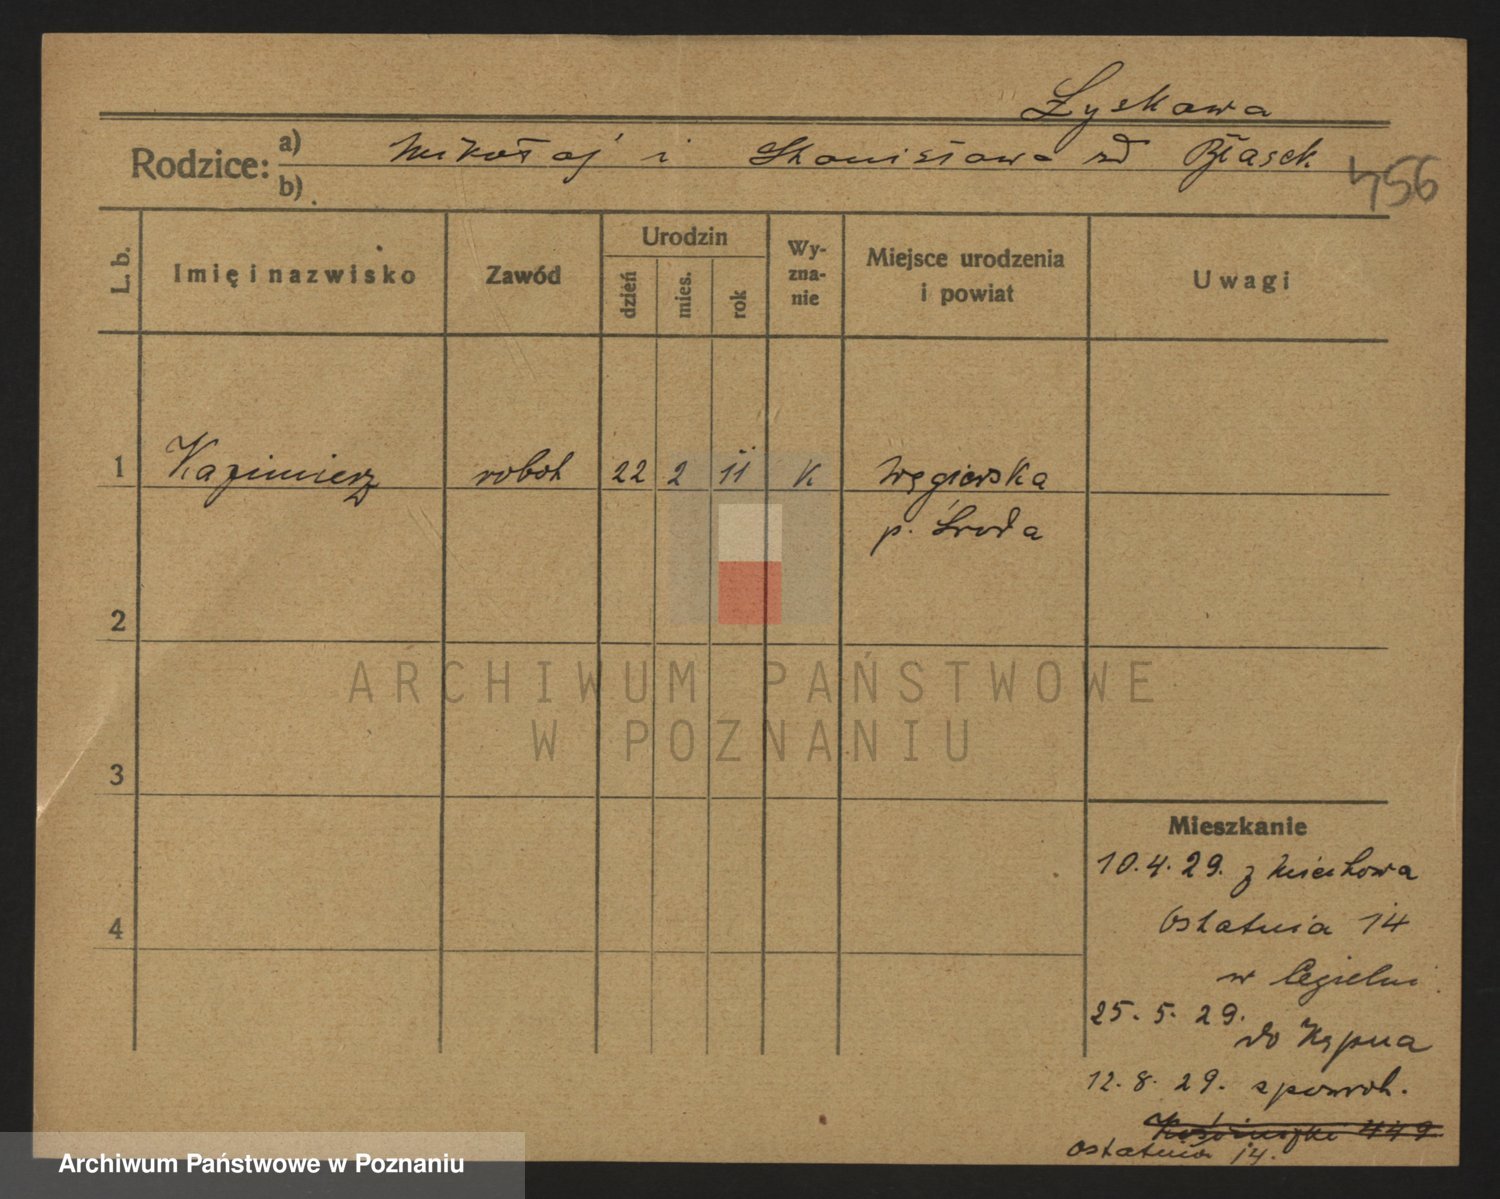 Łyskawa
Rodzice: a) Mikołaj i Stanisława zd Błaszk
b)
456
L. b.
Imię i nazwisko
Zawód
Urodzin
dzień
mies.
rok
Wy-
zna-
nie
Miejsce urodzenia
i powiat
Uwagi
1 Kazimierz robot 22 2 11 K Węgierska
p. Środa
2
ARCHIWUM PAŃSTWOWE
W POZNANIU
3
Mieszkanie
10.4.29. z
4
Ostatnia 14
w Cegielni
25.5.29.
do Kępna
12.8.29. z powrot.
449
Ostatnia 14.
Archiwum Państwowe w Poznaniu